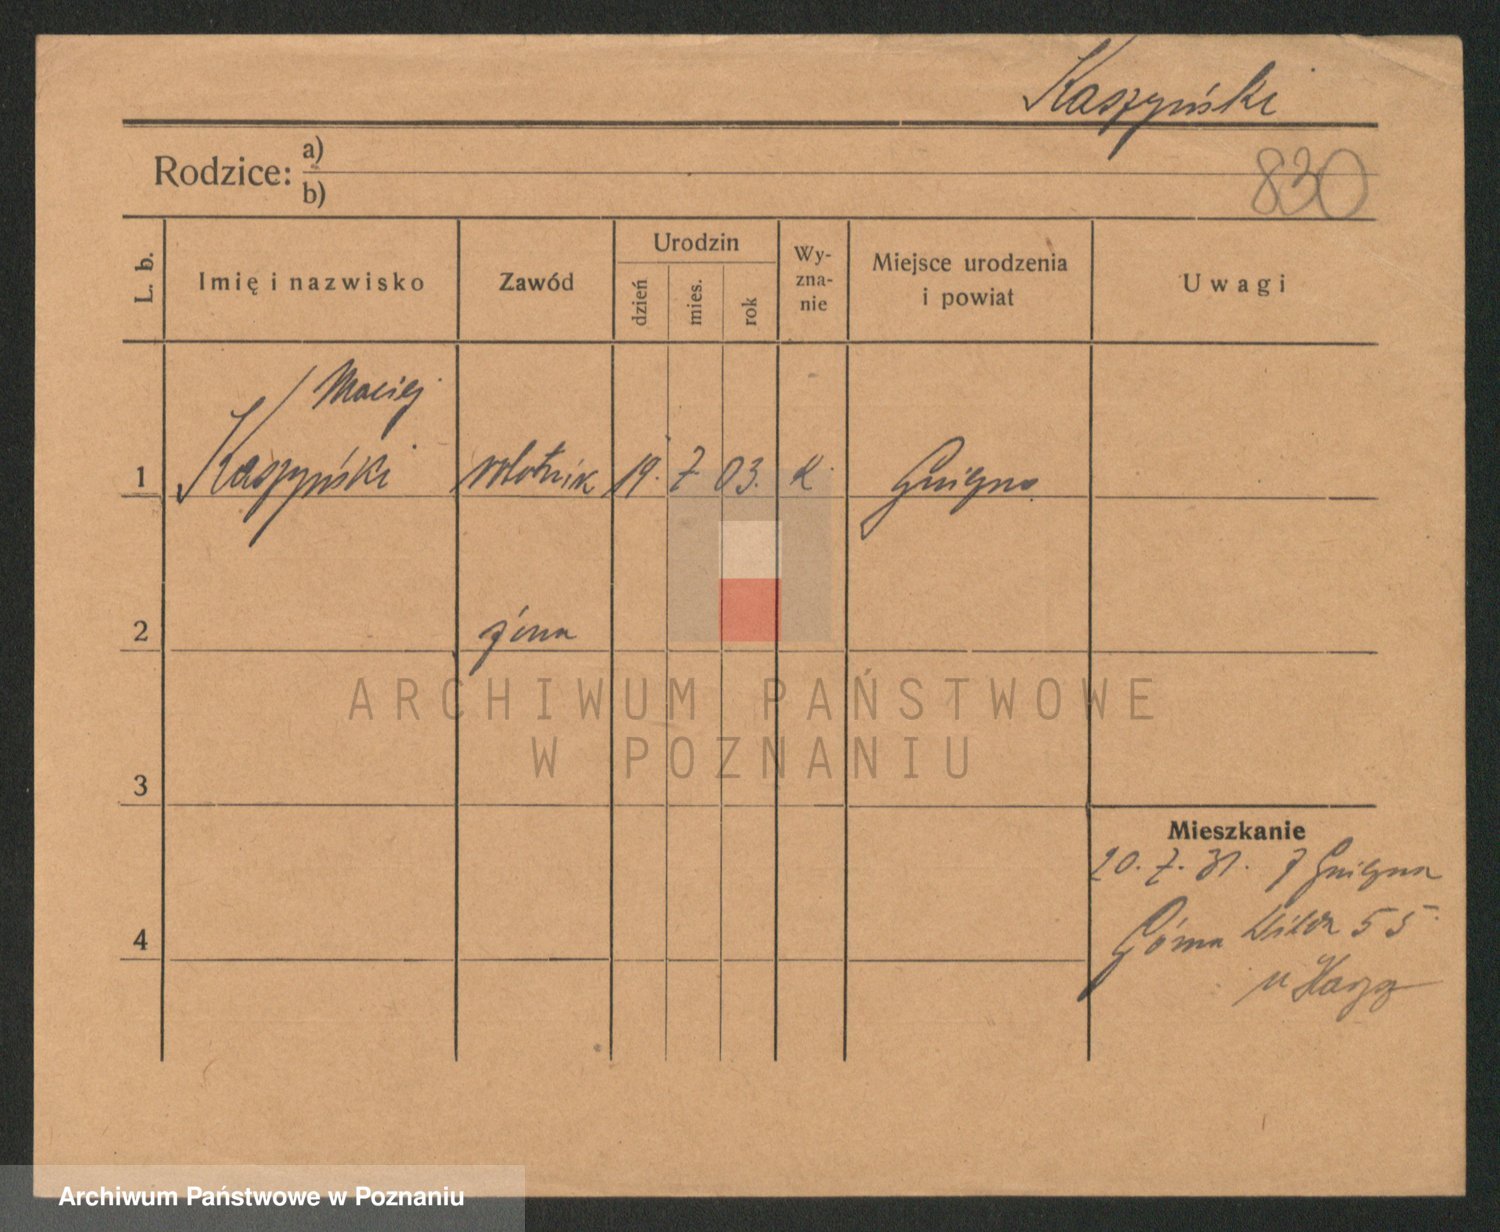 Kaszyński
Rodzice: a)
b)
830
L. b.
Imię i nazwisko
Zawód
Urodzin
dzień
mies.
rok
Wy-
zna-
nie
Miejsce urodzenia
i powiat
Uwagi
Maciej
1 Kaszyński robotnik 19. 7 03. k.
2 żona
3
4
Mieszkanie
20. 7. 31.
Górna Wilda 55
ARCHIWUM PAŃSTWOWE
W POZNANIU
Archiwum Państwowe w Poznaniu